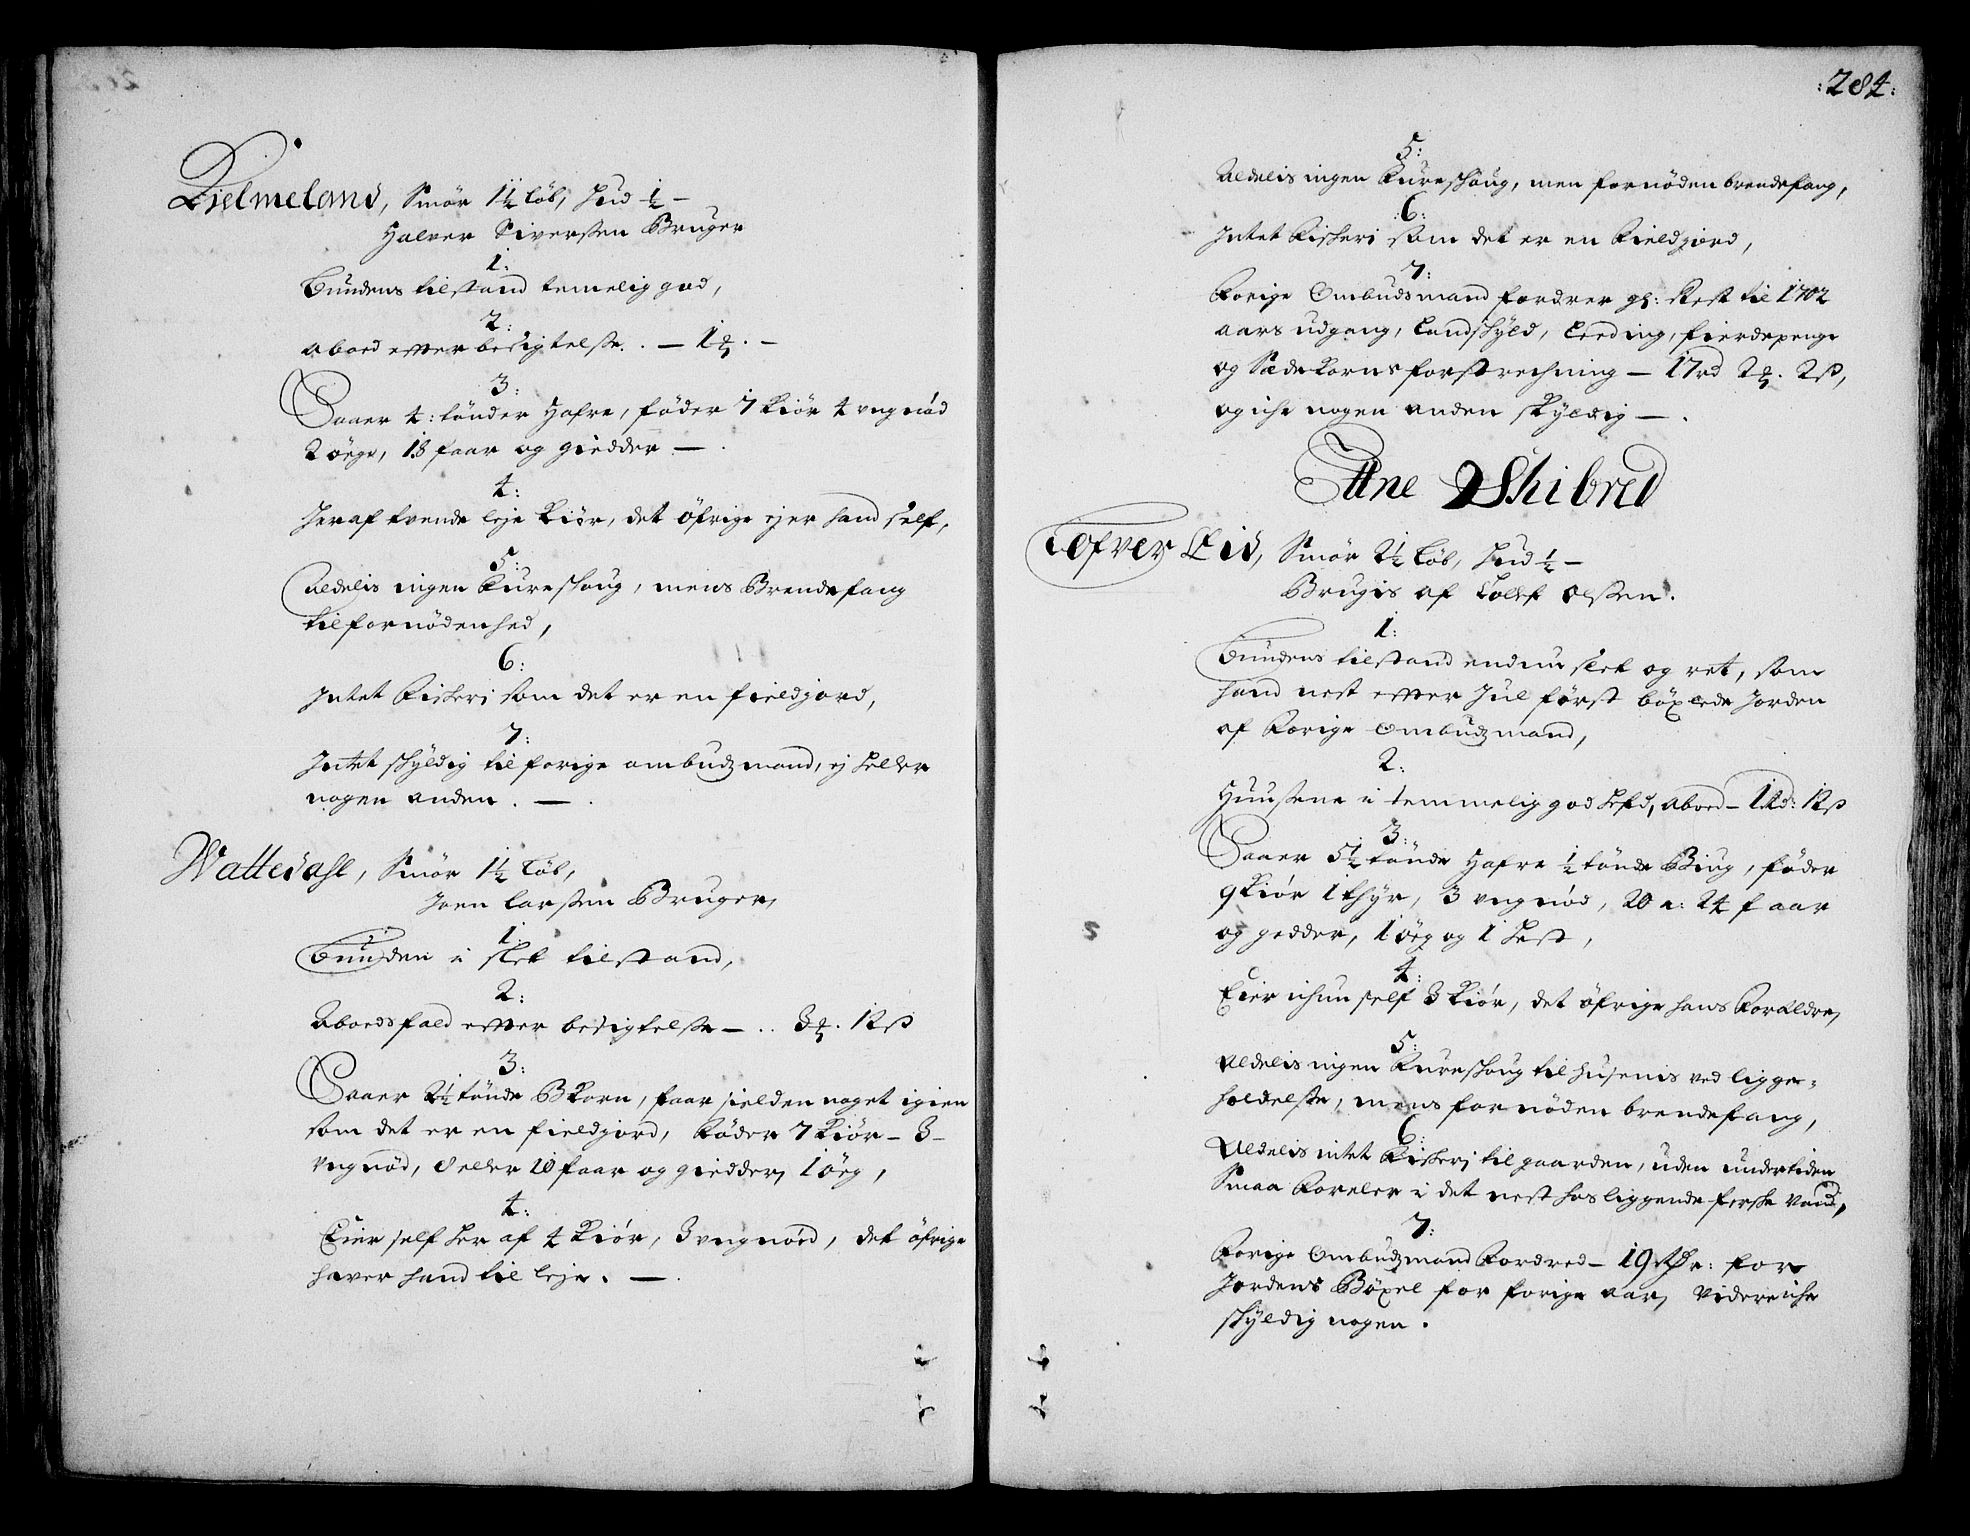 Kielmeland, Smør 1½ løb, Hud ½ –
Halver Siverssen Bruger
1:
Bundens tilstand temelig god,
2:
Aboed effter besigtelsse . – 1 ꝝ. –
3:
Saaer 4: tønder Hafre, føder 7 Kiør 4 ungnød
2 øege, 18 faar og giedder – .
4:
Heraf tvende leje Kiør, det øfrige ejer hand self,
5:
Aldelis ingen Fureskoug, mens Brendefang
til fornødenhed,
6:
Intet Fiskerj som det er en fieldgaard,
7:
Intet skyldig til forige ombudzmand, ej heller
nogen anden . – .
Wattedahl, Smør 1½ løb,
Joen Larssen Bruger,
1:
Bunden i slet tilstand,
2:
Aboedsfald effter besigtelsse – .. 3 ꝝ. 12 ß
3:
Saaer 2½ tønde BKorn, faar sielden noget igien
som det er en fieldgord, Føder 7 Kiør – 3 –
ungnød, 8 eller 10 faar og giedder, 1 øeg,
4:
Eier self her af 4 Kiør, 3 ungnød, det øfrige
haver hand til leje. – .
:284:
5:
Aldelis ingen Fureskoug, men fornøden brendefang,
:6:
Intet Fiskeri som det er en Fieldgord,
7:
Forige Ombudsmand fordrer gl: Rest til 1702
aars udgang, Landskyld, Leeding, fierdepenge
og Sædekorns forstrechning – 17 rd 2 ꝝ. 2 ß,
og iche nogen anden skyldig – .
Etne Skibred
Tofver Eid, Smør 2½ Løb, Hud ½ –
Brugis af Tollef Olssen.
1:
Bundens tilstand endnu slet og ret, som
hand nest effter Jul først bøxlede Jorden
af Forige Ombudzmand,
2:
Huussene i temmelig god hefd, Aboed – 1 Rd: 12 ß
3:
Saaer 5½ tønde Hafre ½ tønde Biug, føder
9 Kiør 1 thyr, 3 ungnød, 20 a: 24 faar
og gedder, 1 øeg og 1 Hest,
4:
Eier ichun self 3 Kiør, det øfrige hans Forældre,
5:
Aldelis ingen Fureskoug til Husenis ved ligge=
holdelsse, mens fornøden brendefang,
6:
Aldelis intet Fiskerj til gaarden, uden undertiden
Smaa Foreler i det nest hos liggende ferske Vand,
7:
Forige Ombudzmand Fordred – 19 Rdr: for
Jordens Bøxel for forige aar, Videre iche
skyldig nogen .